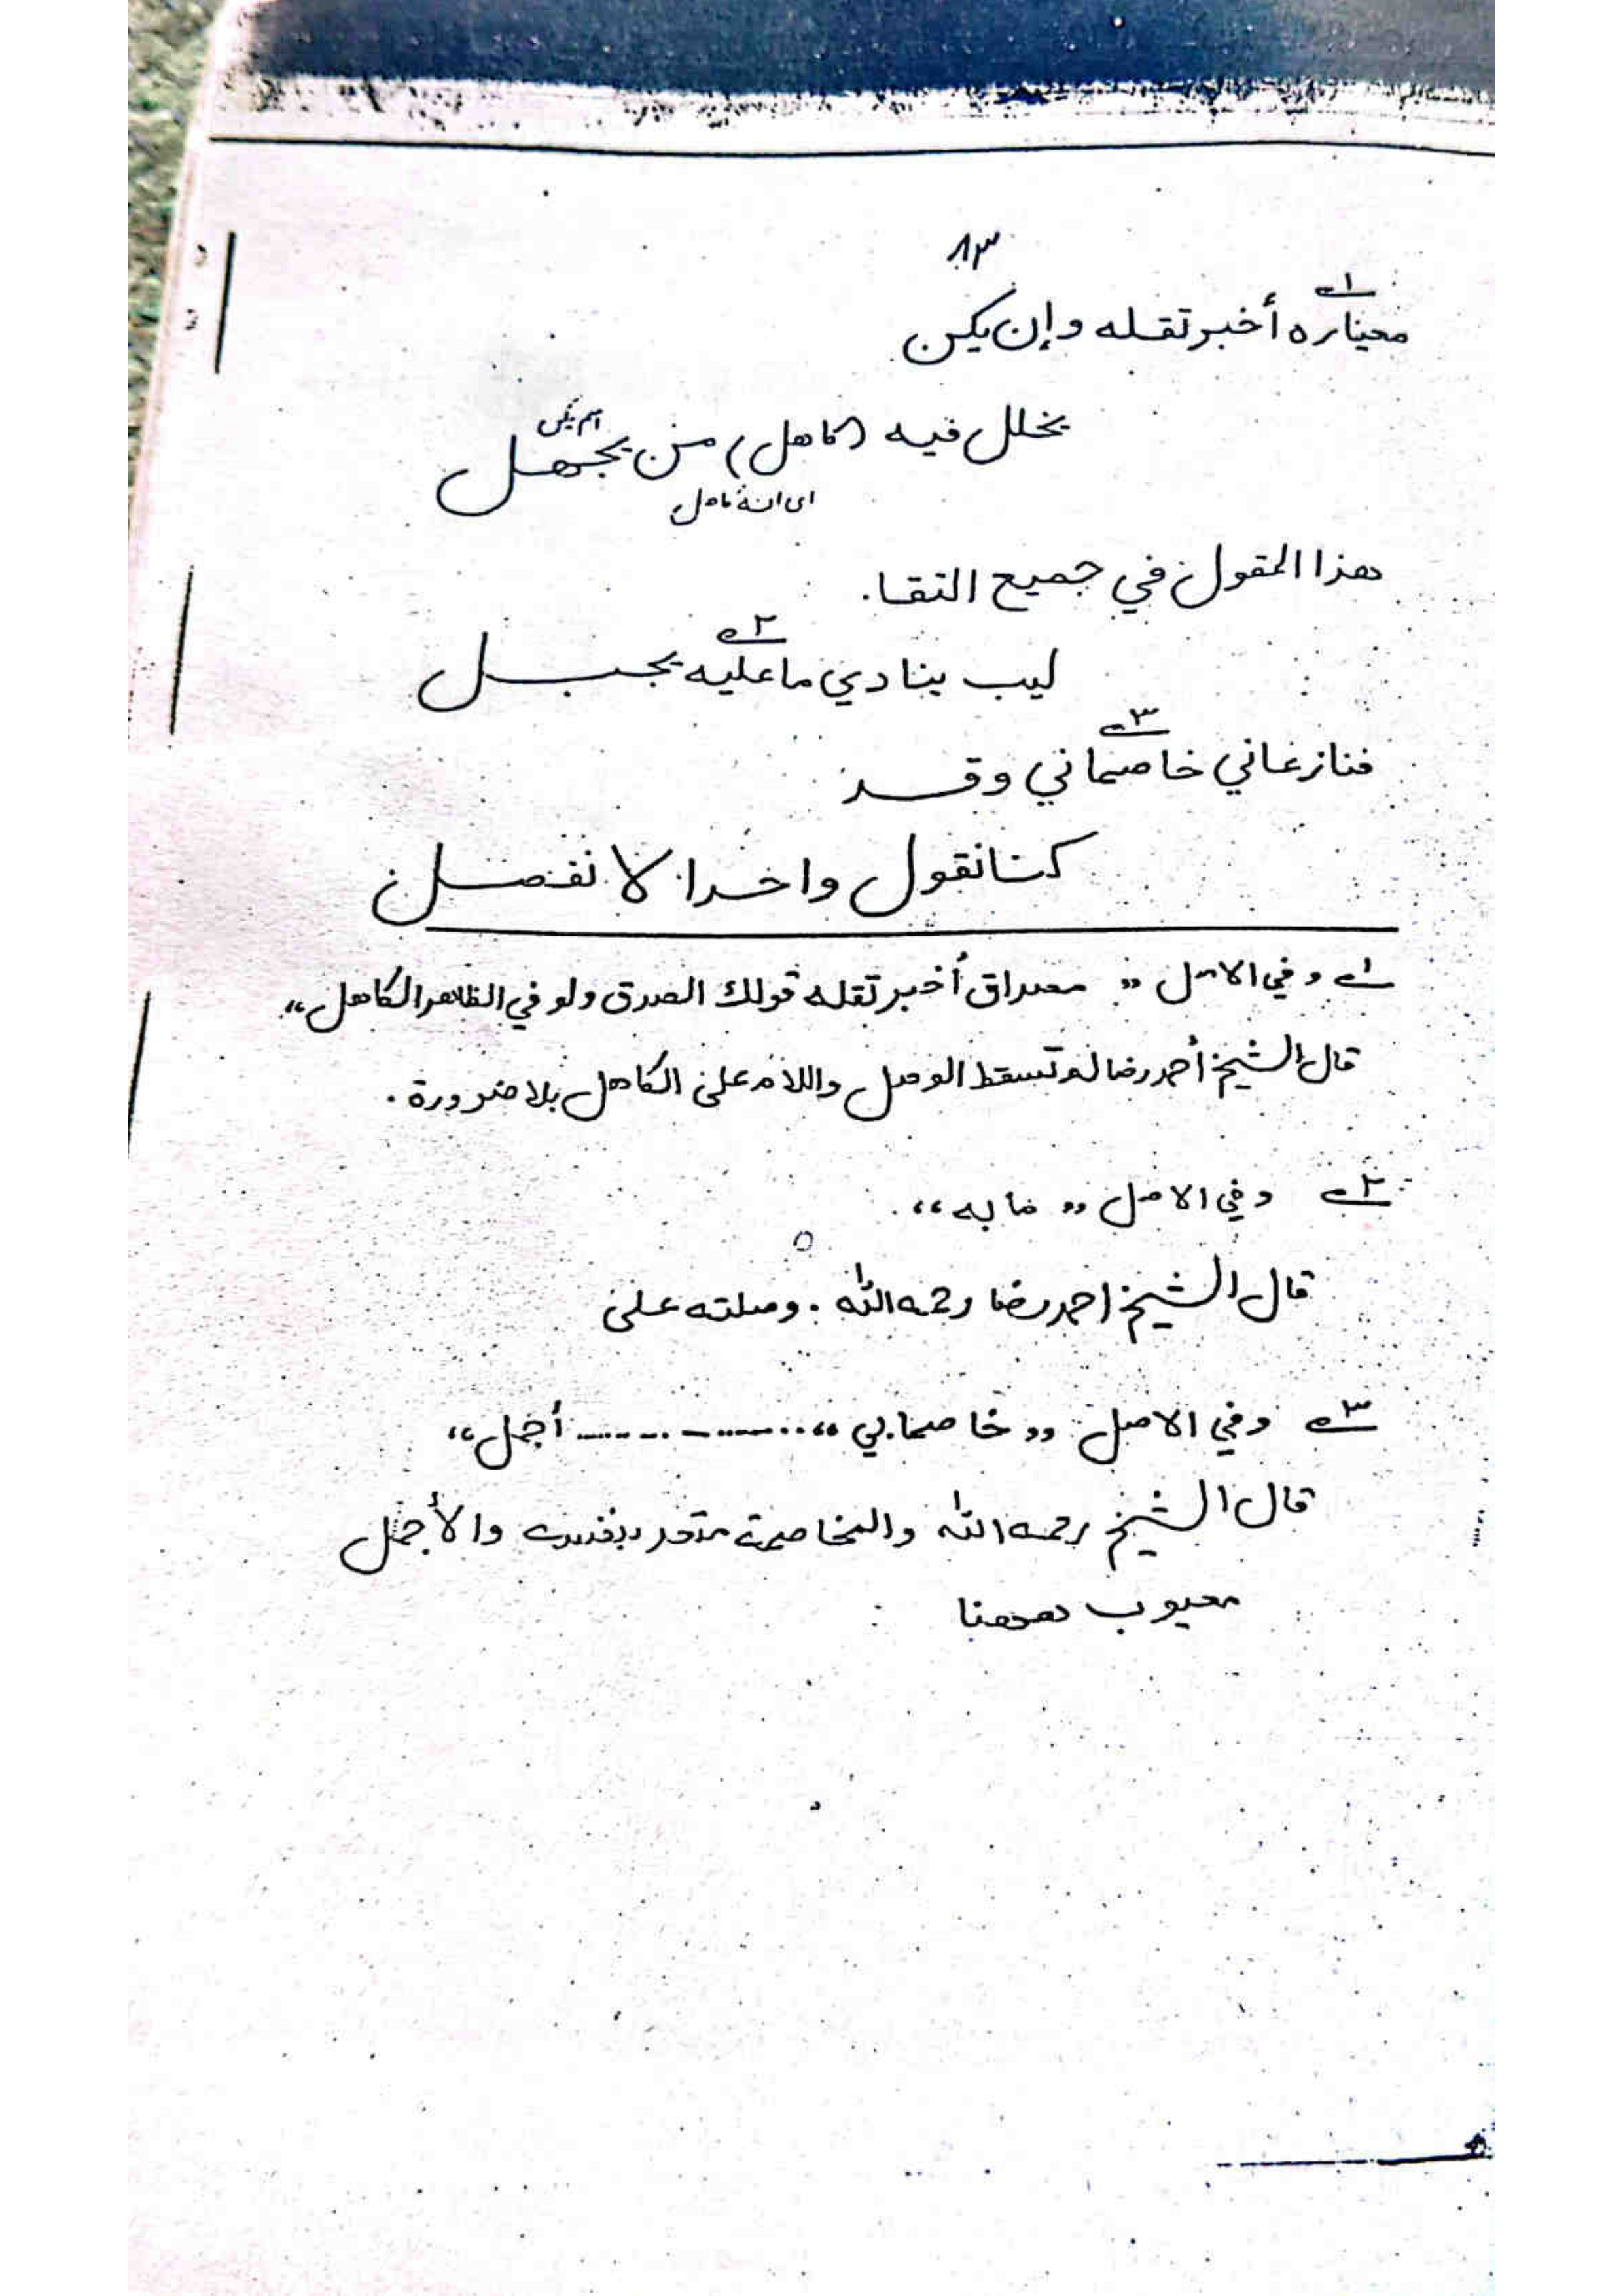 ٨٣
معياره أخبر تقله وإن يكن
يخلل فيه (كاهل) من يجهل
اسم يكن
اى انه كاهل
هذا المقول في جميع التقا
ليب ينادي ما عليه يجبل
فنازعاني خاصماني وقد
كنا نقول واحدا لا نفصل
١ وفي الاصل "مصداق أخبر تقله قولك الصدق ولو في الظاهر الكاهل"
قال الشيخ أحمد رضا تسقط الوصل واللام على الكاهل بلا ضرورة.
٢ وفي الاصل "ما به"
قال الشيخ احمد رضا رحمه الله. وصلته على
٣ وفي الاصل "خاصمابي" .......... أجمل"
قال الشيخ رحمه الله والمخاصمة متعد بنفسه والأجمل
معيوب ههنا